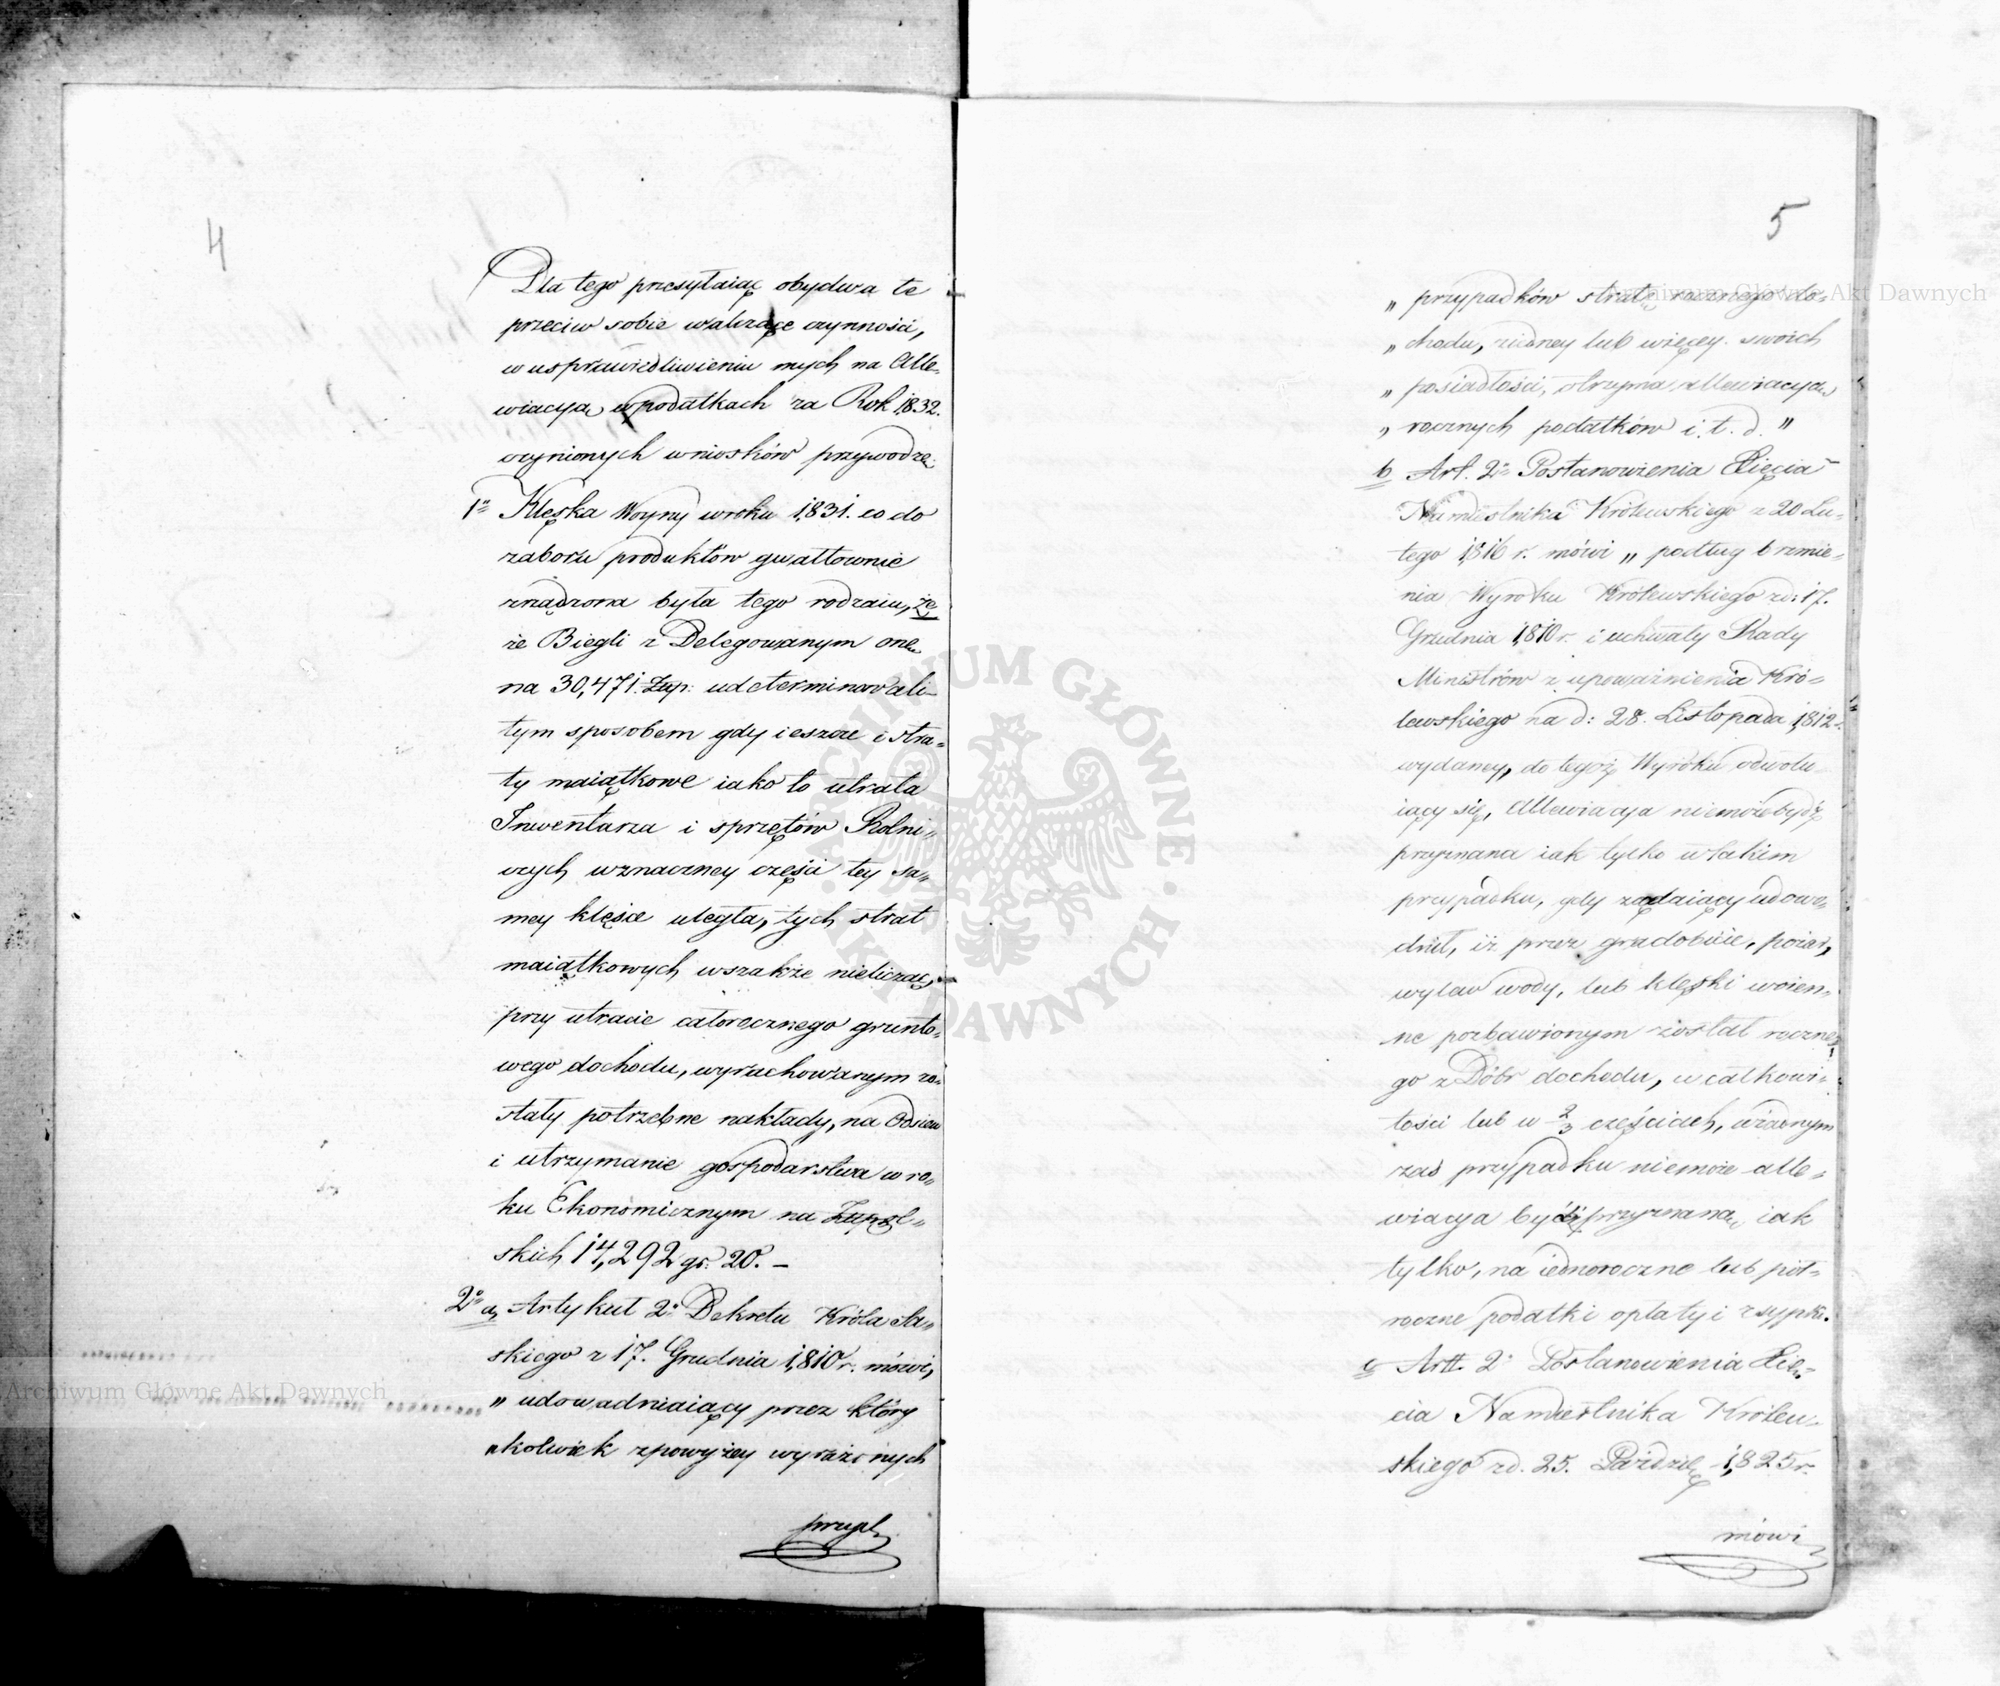 4
Dla tego przesyłaiąc obydwa te
przeciw sobie walczące czynności,
w usprawiedliwieniu mych na Alle-
wiacyą w podatkach za Rok 1832.
uczynionych wniosków przywodzę:
1o Klęska Woyny w roku 1831. co do
zaboru produktów gwałtownie
zrządzona była tego rodzaiu, że
że Biegli z Delegowanym onę
na 30,471. Złłp: udeterminowali
tym sposobem gdy ieszcze i stra-
ty maiątkowe iako to utrata
Inwentarza i sprzętów Rolni-
czych w znaczney części tey sa-
mey klęsce uległa, tych strat
maiątkowych wszakże nielicząc,
przy utracie całorocznego grunto-
wego dochodu, wyrachowanym zo-
stały potrzebne nakłady, na Odsiew
i utrzymanie gospodarstwa w ro-
ku Ekonomicznym na Złłpol-
skich 14,292 gr. 20. –
2o a, Artykuł 2o Dekretu Króla Sa-
skiego z 17. Grudnia 1810 r. mówi,
„ udowadniaiący przez który
„ kolwiek z powyżey wyrażonych
przyp
5
„ przypadków stratę rocznego do-
„ chodu, z iedney lub więcey swoich
„ posiadłości, otrzyma allewiacyą
„ rocznych podatków i. t. d. „
b Art. 2o Postanowienia Xięcia
Namiestnika Królewskiego z 20 Lu-
tego 1816 r. mówi „ podług brzmie-
nia Wyroku Królewskiego z d: 17.
Grudnia 1810 r. i uchwały Rady
Ministrów z upoważnienia Kró-
lewskiego na d: 28. Listopada 1812 r.
wydaney, do tegoż Wyroku odwołu
iący się, Allewiacya niemoże bydź
przyznana iak tylko w takiem
przypadku, gdy żądaiący udowo-
dnił, iż przez gradobicie, pożar,
wylew wody, lub klęski woien-
ne pozbawionym został roczne-
go z Dóbr dochodu, w całkowi-
tości lub w 2/3 częściach, w żadnym
zaś przypadku niemoże alle-
wiacya bydź przyznaną iak
tylko, na iednoroczne lub pół-
roczne podatki opłaty i zsypki.
c Artt. 2o Postanowienia Xię-
cia Namiestnika Królew-
skiego z d. 25. Paździer 1825 r.
mówi
Archiwum Główne Akt Dawnych
Archiwum Główne Akt Dawnych
ARCHIWUM GŁÓWNE · AKT DAWNYCH ·